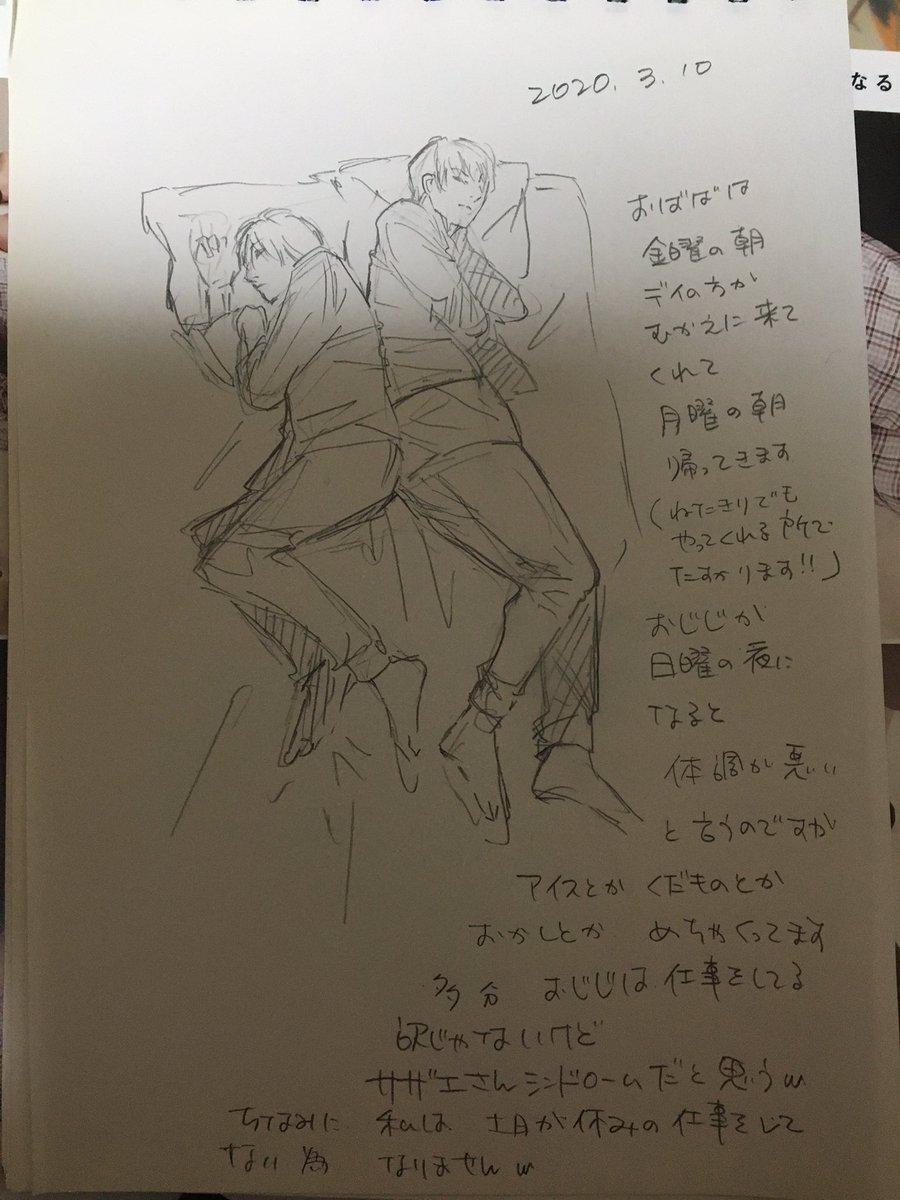 2020. 3. 10
なる
おばばは
金曜の朝
デイの方が
むかえに来て
くれて
月曜の朝
帰ってきます
(ねたきりでも
やってくれる所で
たすかります!!)
おじじが
日曜の夜に
なると
体調が悪いい
と言うのですが
アイスとか くだものとか
おかしとか めちゃくってます
多分 おじじは 仕事をしてる
訳じゃないけど
サザエさんシンドロームだと思うw
ちなみに 私は 土日が休みの仕事をして
ない為 なりませんw